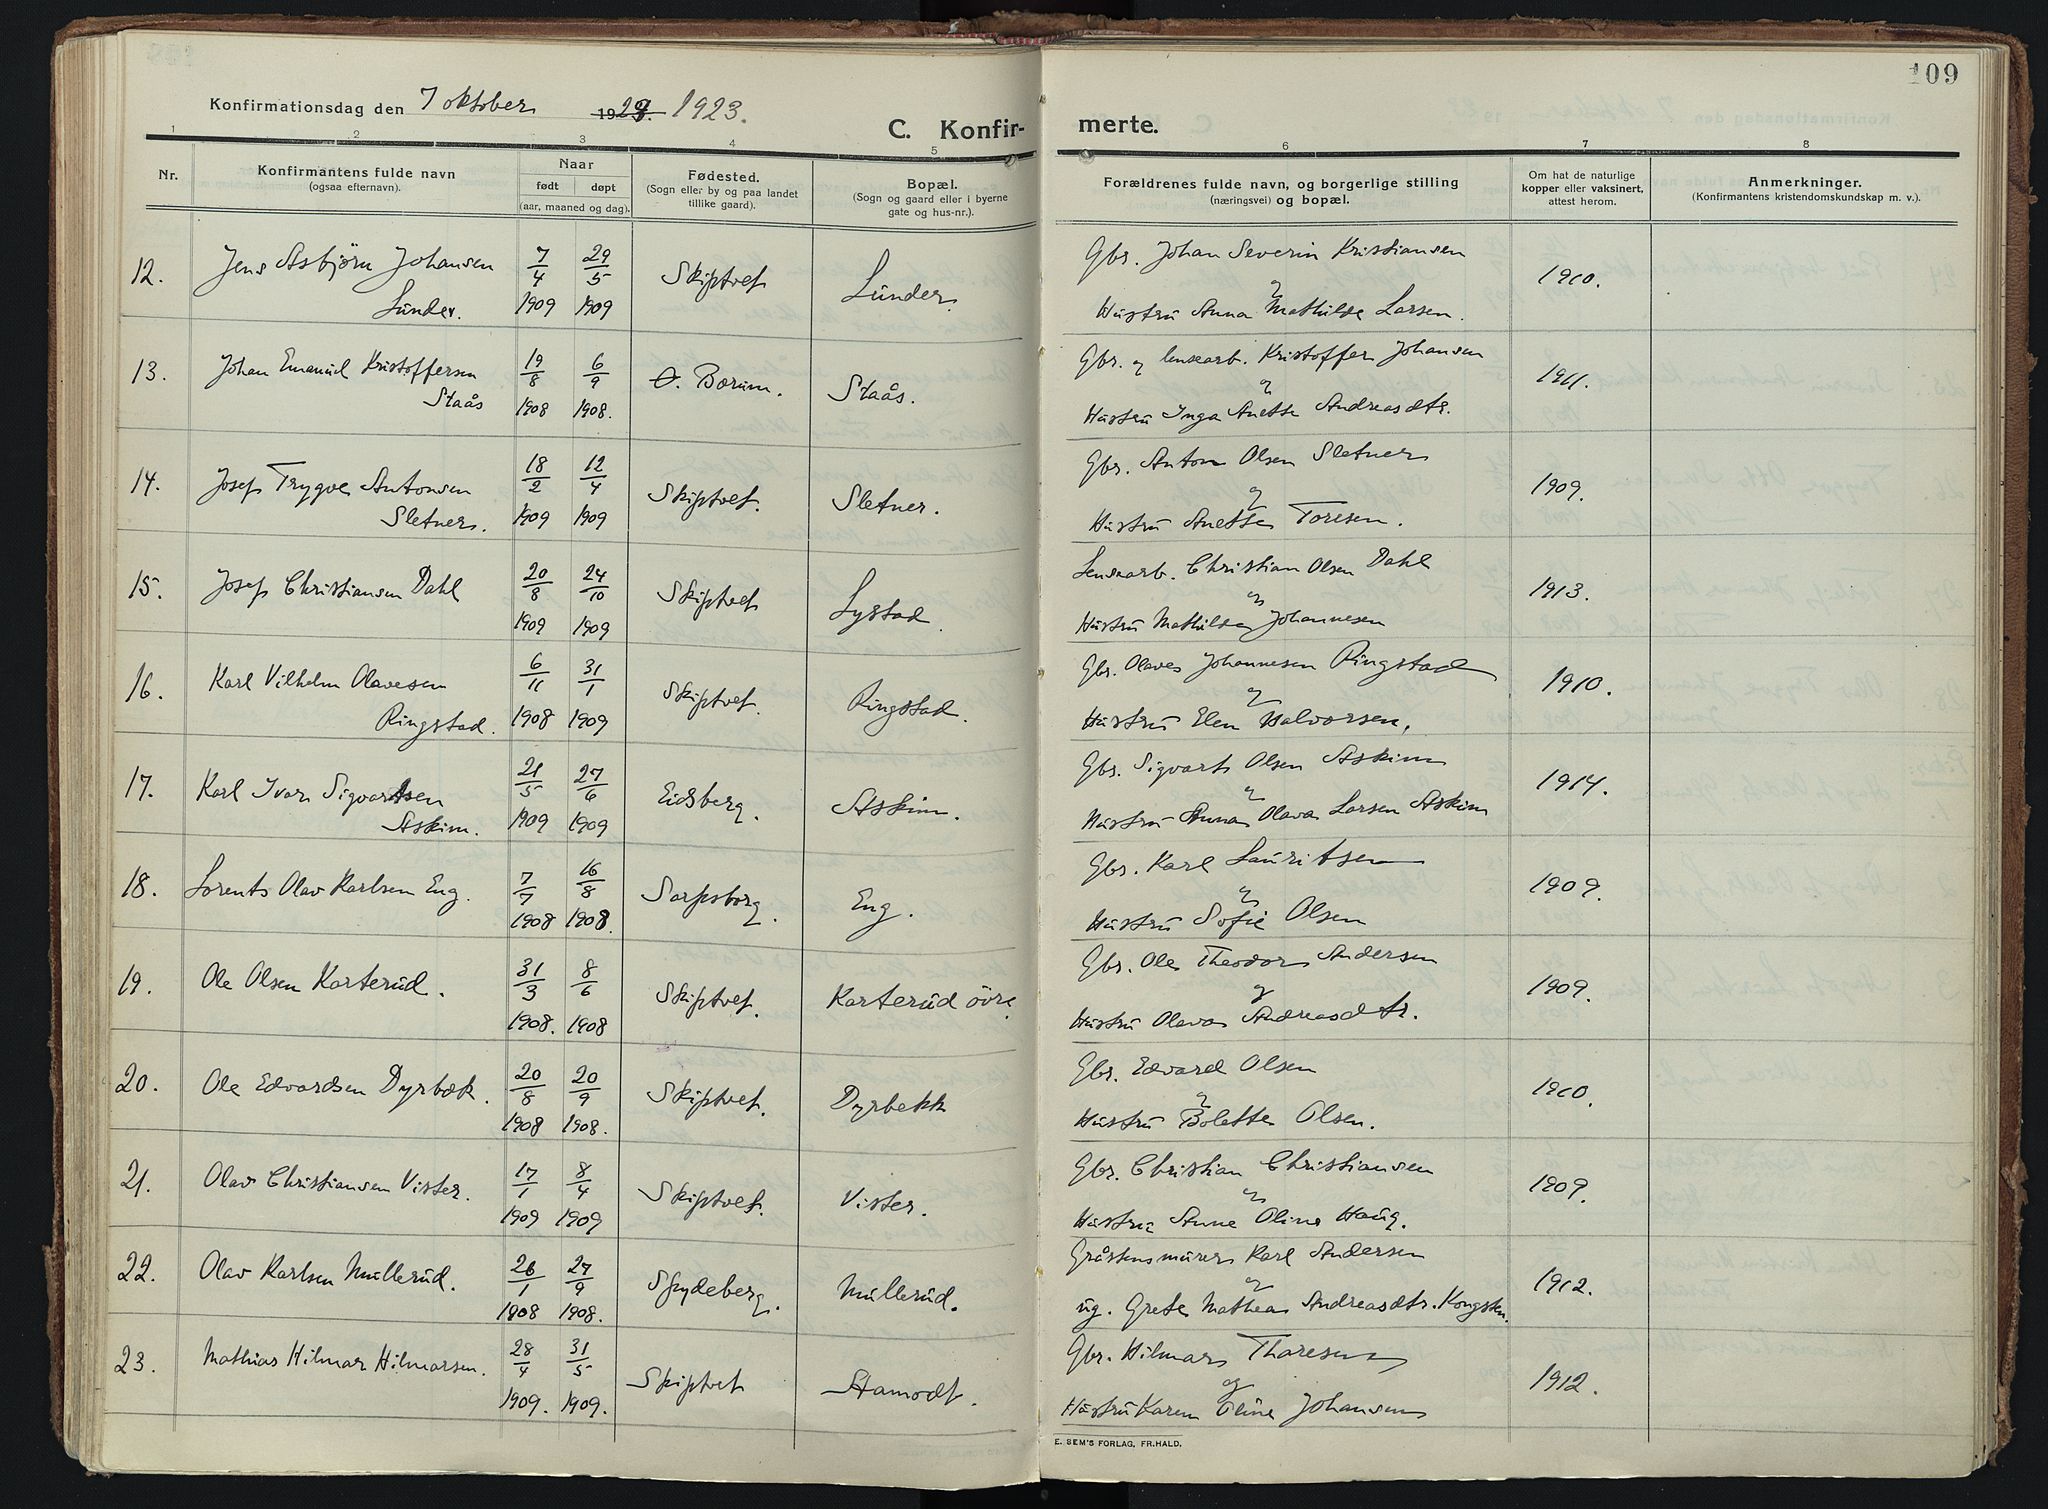 109
Konfirmationsdag den 7 oktober 1923.
C. Konfir-
merte.
1 2 3 4 5 6 7 8
Nr.
Konfirmantens fulde navn
(ogsaa efternavn).
Naar
født døpt
(aar, maaned og dag).
Fødested.
(Sogn eller by og paa landet
tillike gaard).
Bopæl.
(Sogn og gaard eller i byerne
gate og hus-nr.).
Forældrenes fulde navn, og borgerlige stilling
(næringsvei) og bopæl.
Om hat de naturlige
kopper eller vaksinert,
attest herom.
Anmerkninger.
(Konfirmantens kristendomskundskap m. v.).
12. Jens Asbjørn Johansen 7/4 29/5 Skiptvet Lunder. Gbr. Johan Severin Kristiansen 1910.
Lunder. 1909 1909 og Hustru Anna Mathilde Larsen.
13. Johan Emanuel Kristoffersen 19/8 6/9 Ø. Bærum. Staås. Gbr. og lensearb. Kristoffer Johansen 1911.
Staås 1908 1908. og Hustru Inga Anette Andreasdtr.
14. Josef Trygve Antonsen 18/2 12/4 Skiptvet. Sletner. Gbr. Anton Olsen Sletner 1909.
Sletner. 1909 1909 og Hustru Anette Toresen.
15. Josef Christiansen Dahl 20/8 24/10 Skiptvet Lystad. Lensearb. Christian Olsen Dahl 1913.
1909 1909 og Hustru Mathilde Johannesen
16. Karl Vilhelm Olavesen 6/11 31/1 Skiptvet. Ringstad. Gbr. Olaves Johannesen Ringstad 1910.
Ringstad. 1908 1909 og Hustru Elen Halvorsen.
17. Karl Ivar Sigvartsen 21/5 27/6 Eidsberg. Askim. Gbr. Sigvart Olsen Askim 1914.
Askim. 1909 1909 og Hustru Anna Olava Larsen Askim
18. Lorents Olav Karlsen Eng. 7/7 16/8 Sarpsborg. Eng. Gbr. Karl Lauritsen 1909.
1908 1908. og Hustru Sofie Olsen
19. Ole Olsen Karterud. 31/3 8/6 Skiptvet. Karterud övre Gbr. Ole Theodor Andersen 1909.
1908. 1908 og Hustru Olava Andreasdtr.
20. Ole Edvardsen Dyrbæk. 20/8 20/9 Skiptvet. Dyrbekk Gbr. Edvard Olsen 1910.
1908 1908. og Hustru Bolette Olsen.
21. Olav Christiansen Vister. 17/1 8/4 Skiptvet. Vister. Gbr. Christian Christiansen 1909.
1909 1909 og Hustru Anne Oline Haug.
22. Olav Karlsen Mullerud. 26/1 27/9 Spydeberg. Mullerud. Gråstensmurer Karl Andersen 1912.
1908 1908. og ug. Grete Mathea Andreasdtr. Kongsten.
23. Mathias Hilmar Hilmarsen. 28/4 31/5 Skiptvet Stamodt. Gbr. Hilmar Thoresen 1912.
1909. 1909. og Hustru Karen Eline Johansen
E. SEM'S FORLAG, FR.HALD.